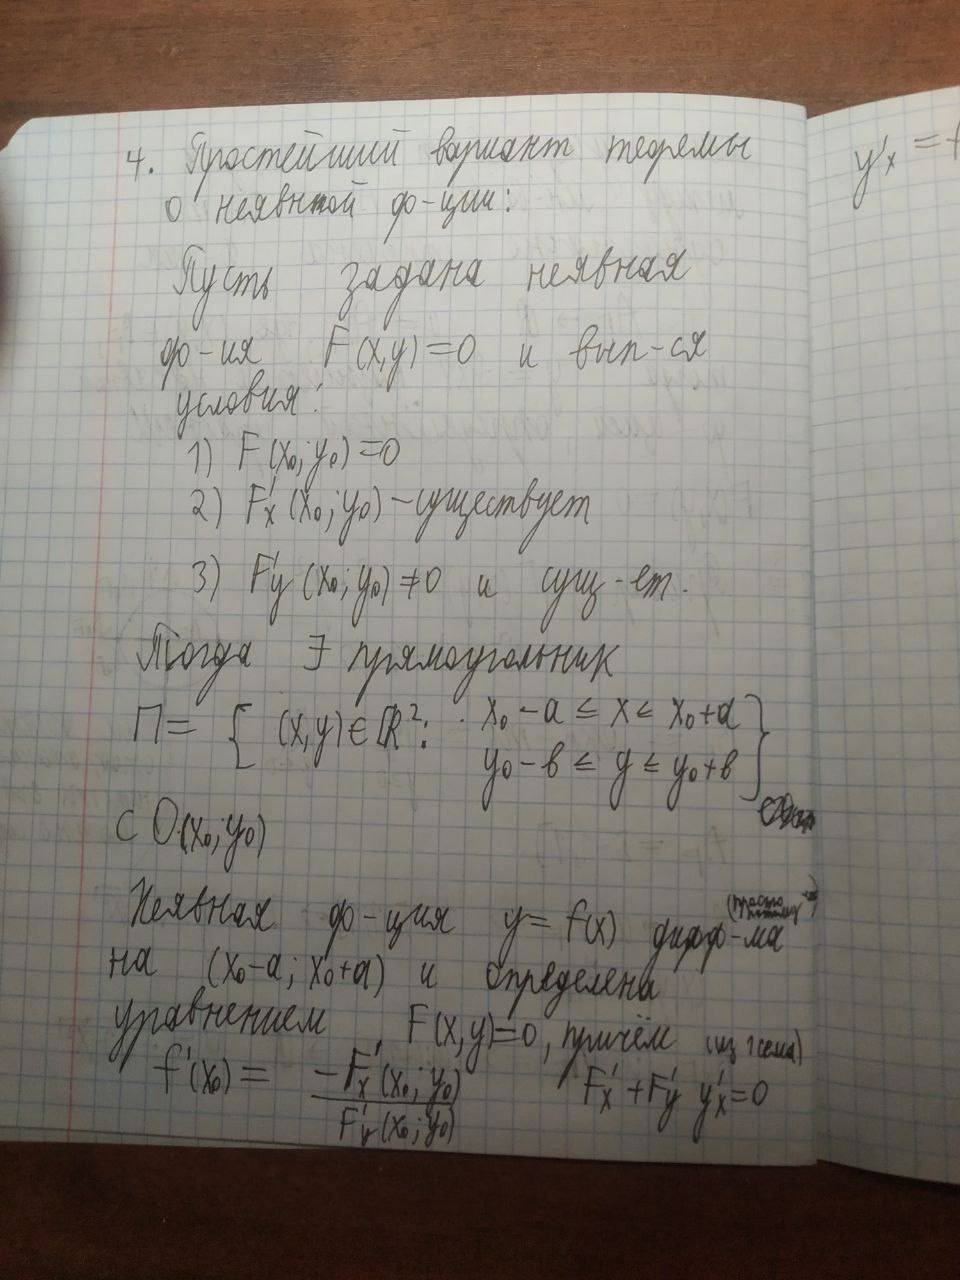 4. Простейший вариант теоремы
о неявной ф-ции:
Пусть задана неявная
ф-ия F(x,y)=0 и вып-ся
условия:
1) F(x₀; y₀)=0
2) F'ₓ(x₀; y₀) – существует
3) F'y(x₀; y₀)≠0 и сущ-ет.
Тогда ∃ прямоугольник
П = { (x,y)∈ℝ²: x₀-a ≤ x ≤ x₀+a
y₀-в ≤ y ≤ y₀+в }
⊂ O(x₀; y₀)
Неявная ф-ция y = f(x) дифф-ма
(просто потому
на (x₀-a; x₀+a) и определена
уравнением F(x,y)=0, причём (из 1 сема)
f'(x₀) = -F'ₓ(x₀; y₀) / F'y(x₀; y₀) F'ₓ + F'y y'ₓ = 0
y'ₓ =